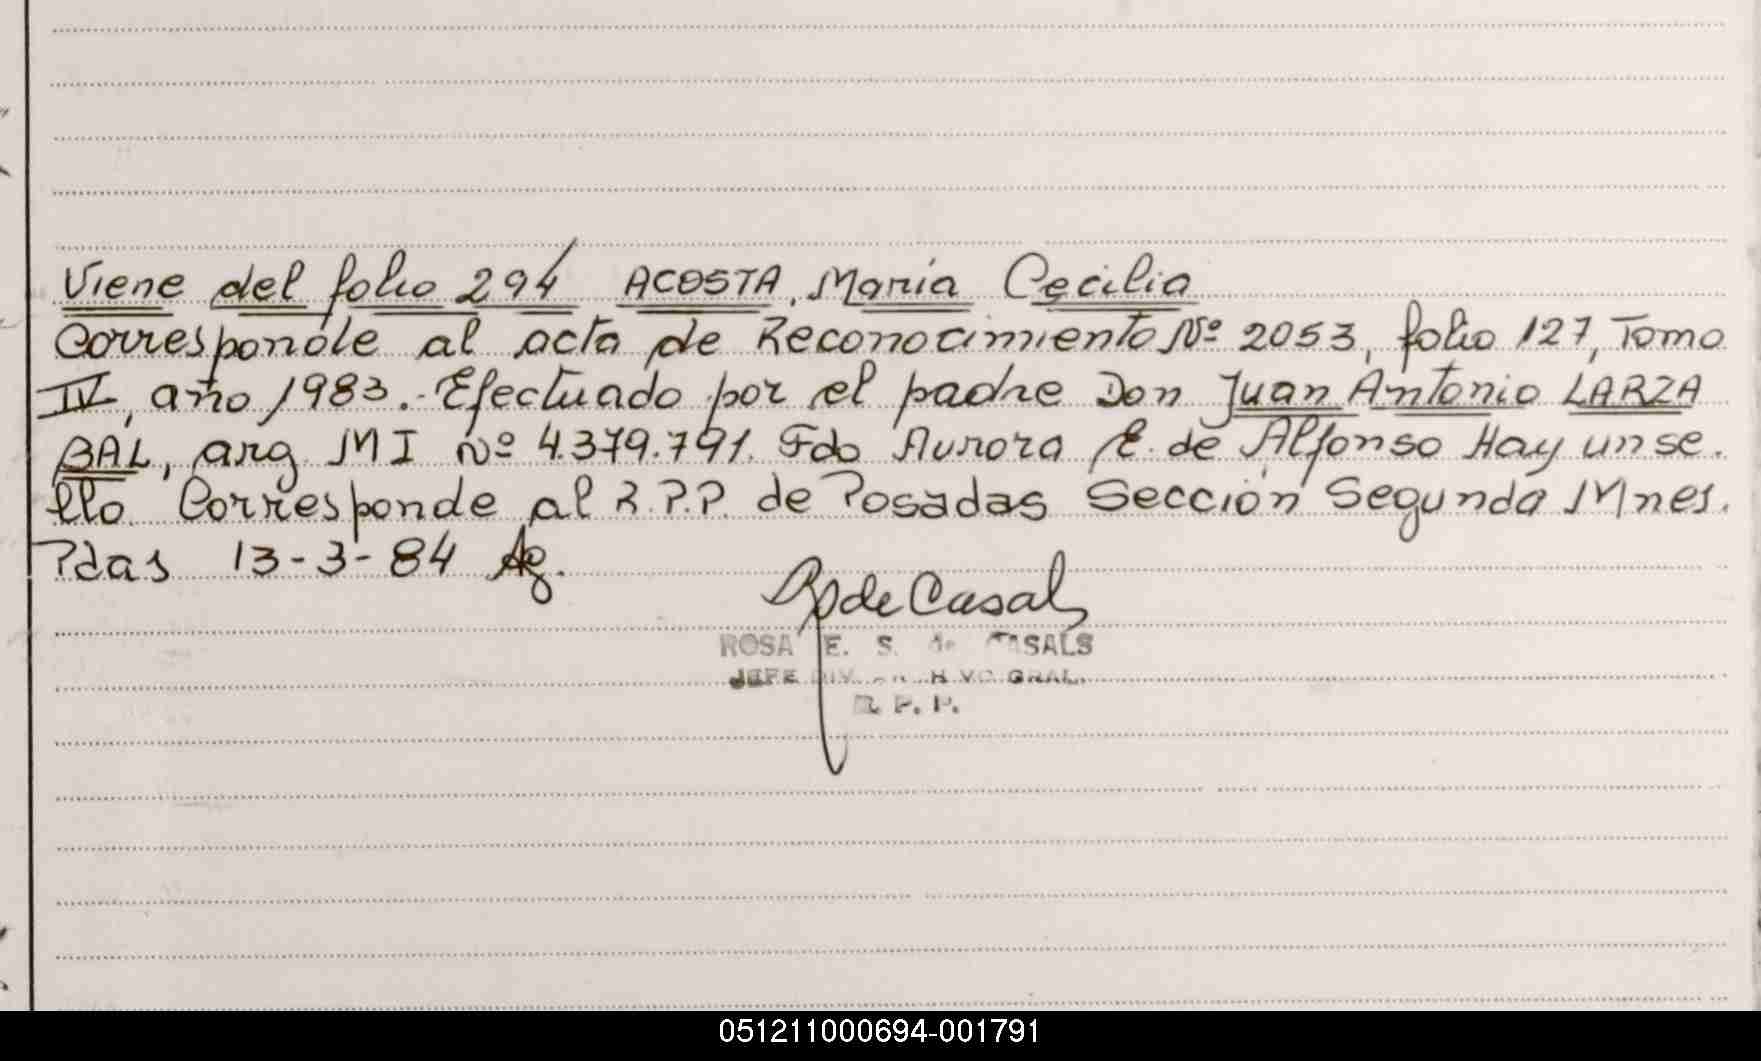 Viene del folio 294 ACOSTA, María Cecilia
Corresponde al acta de Reconocimiento Nº 2053, folio 127, Tomo
IV, año 1983.- Efectuado por el padre Don Juan Antonio LARZA
BAL, arg MI Nº 4.379.791. Fdo Aurora E. de Alfonso Hay un se.
llo Corresponde al R.P.P. de Posadas Sección Segunda Mnes.
Pdas 13-3-84
de Casals
ROSA E. S. de CASALS
JEFE DIV. GRAL.
R. P. P.
051211000694-001791